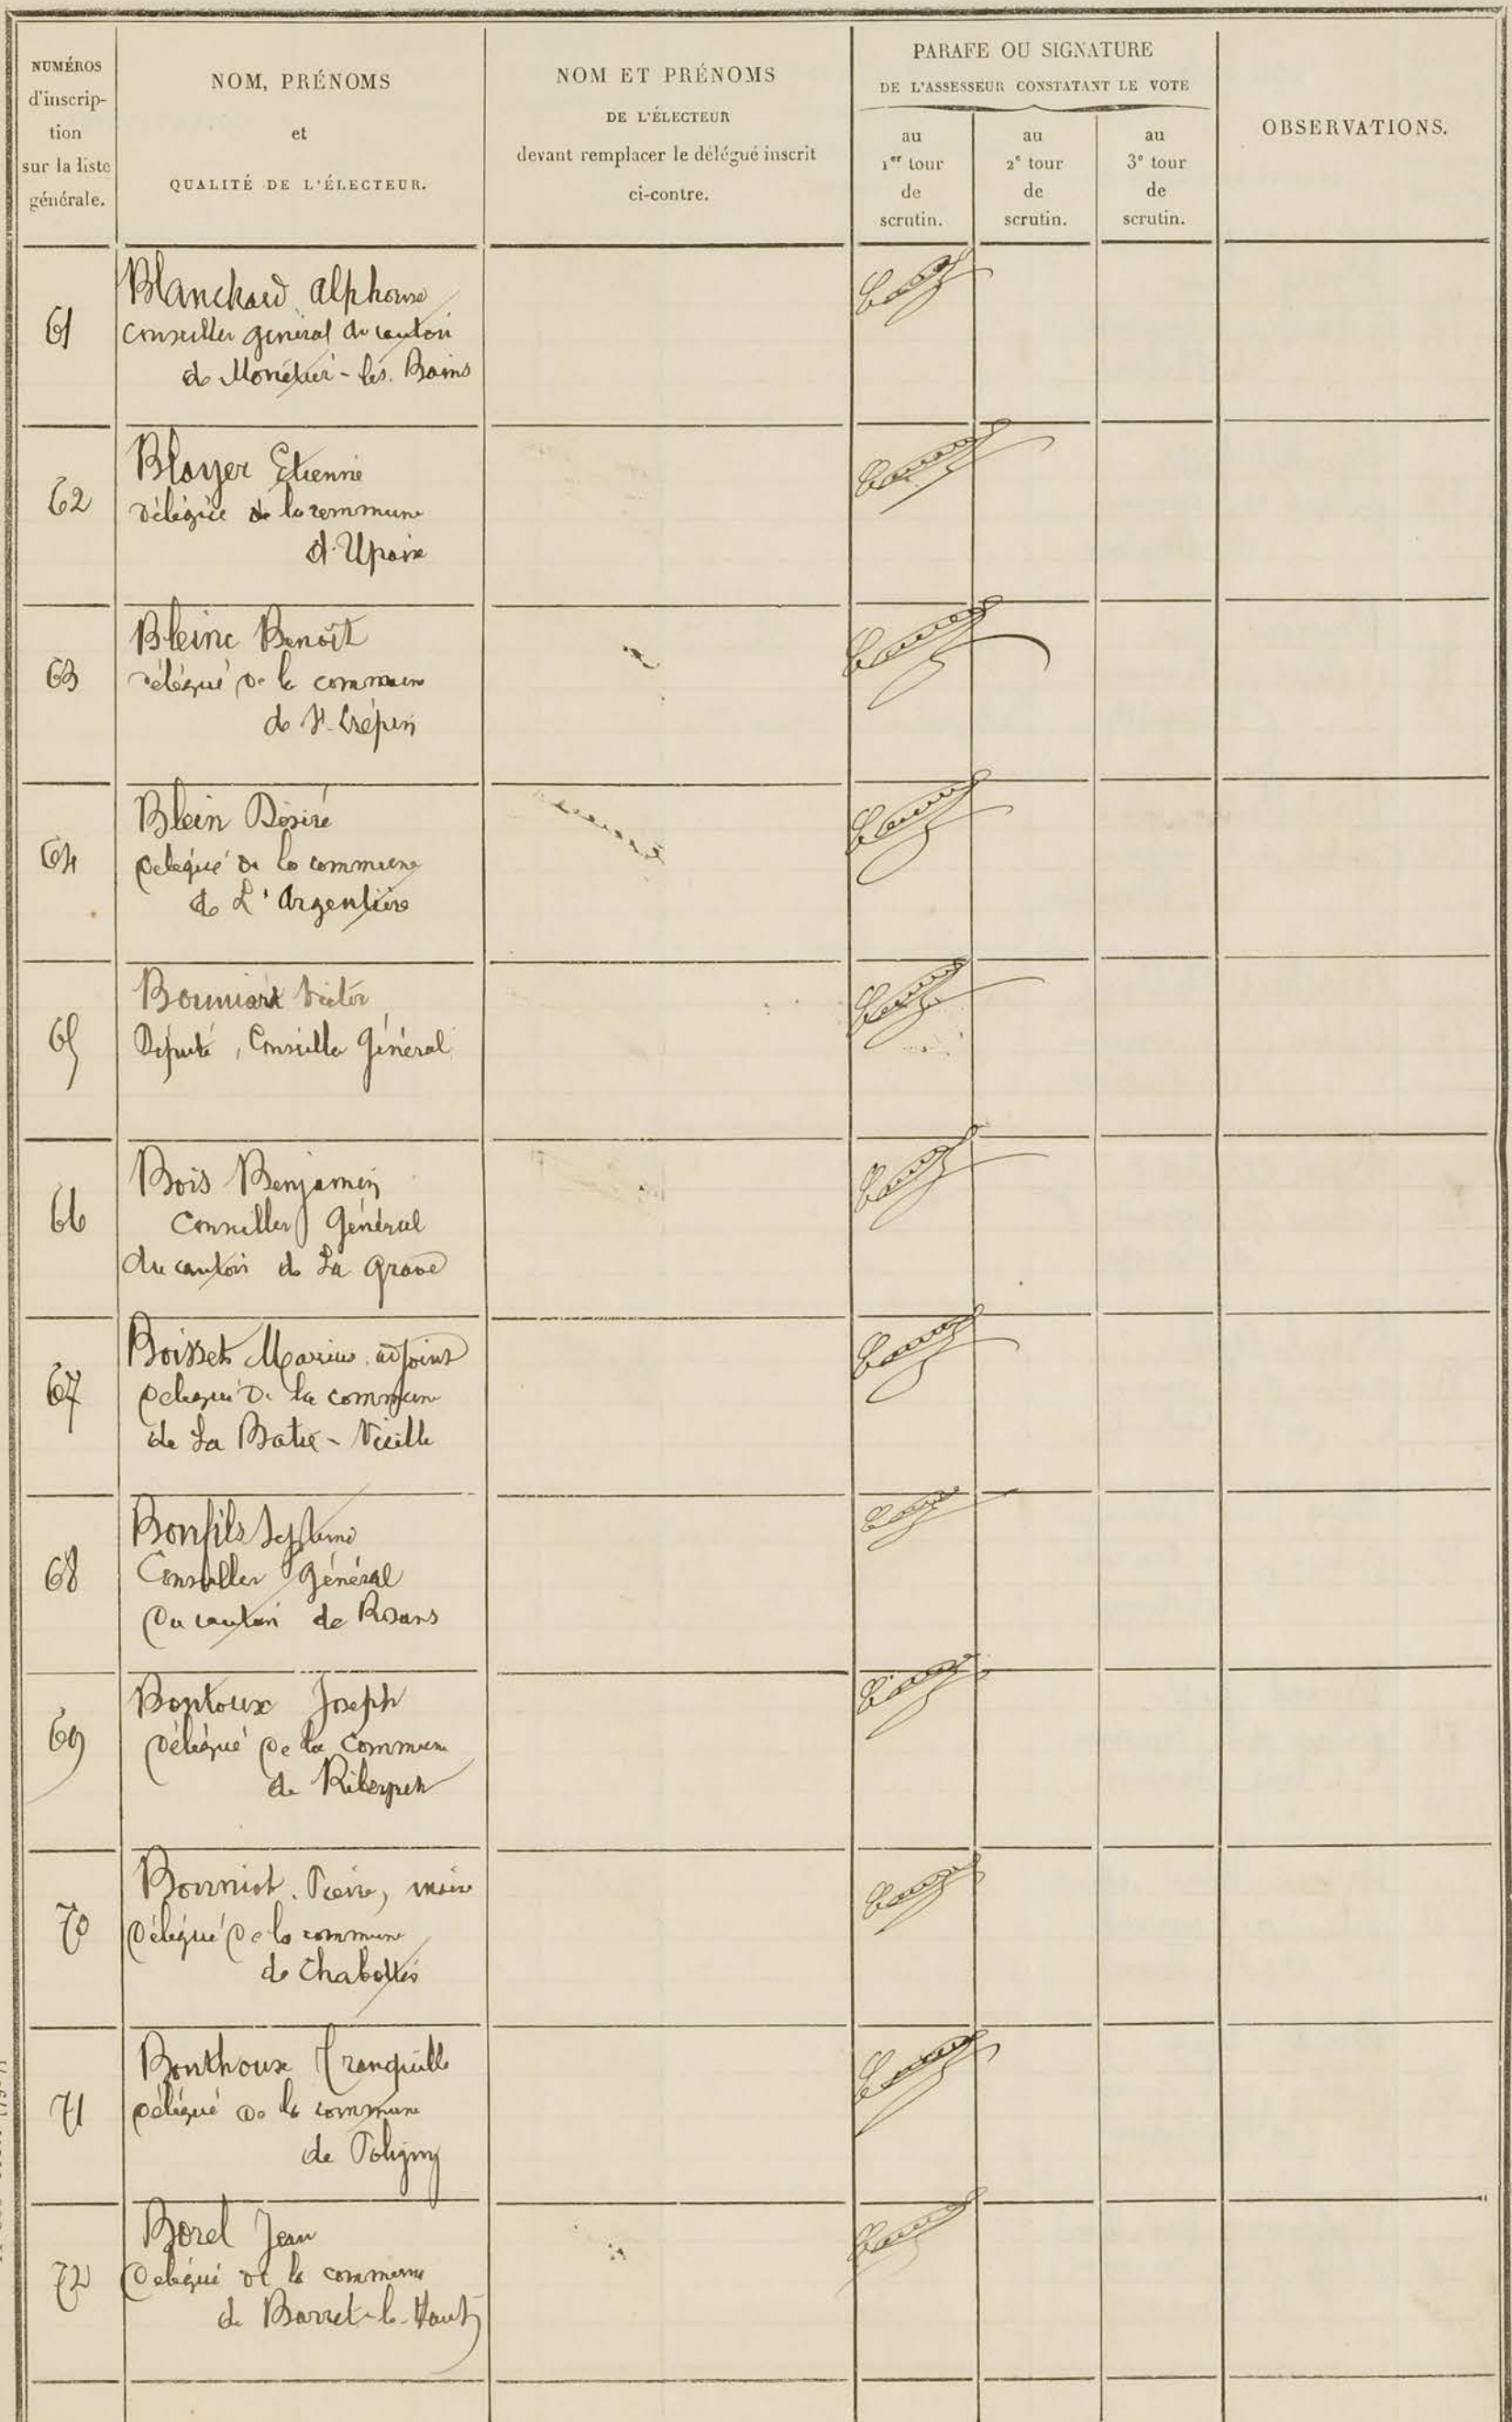 NUMÉROS
d'inscrip-
tion
sur la liste
générale.
NOM, PRÉNOMS
et
QUALITÉ DE L'ÉLECTEUR.
NOM ET PRÉNOMS
DE L'ÉLECTEUR
devant remplacer le délégué inscrit
ci-contre.
PARAFE OU SIGNATURE
DE L'ASSESSEUR CONSTATANT LE VOTE
au
1er tour
de
scrutin.
au
2e tour
de
scrutin.
au
3e tour
de
scrutin.
OBSERVATIONS.
61
Blanchard Alphonse
Conseiller général du canton
de Monêtier-les-Bains
62
Blayer Etienne
Délégué de la commune
d'Upaix
63
Bleinc Benoît
Délégué de la commune
de St Crépin
64
Blein Désiré
Délégué de la commune
de L'Argentière
65
Victor
Député, Conseiller Général
66
Bois Benjamin
Conseiller Général
du canton de La Grave
67
Boisset Marius adjoint
Délégué de la commune
de La Batie-Vieille
68
Bonfils Septime
Conseiller Général
du canton de Rosans
69
Bontoux Joseph
Délégué de la Commune
de Ribeyret
70
Pierre, maire
Délégué de la commune
de Chabottes
71
Bonthoux Tranquille
Délégué de la commune
de Poligny
72
Borel Jean
Délégué de la commune
de Barret-le-Haut